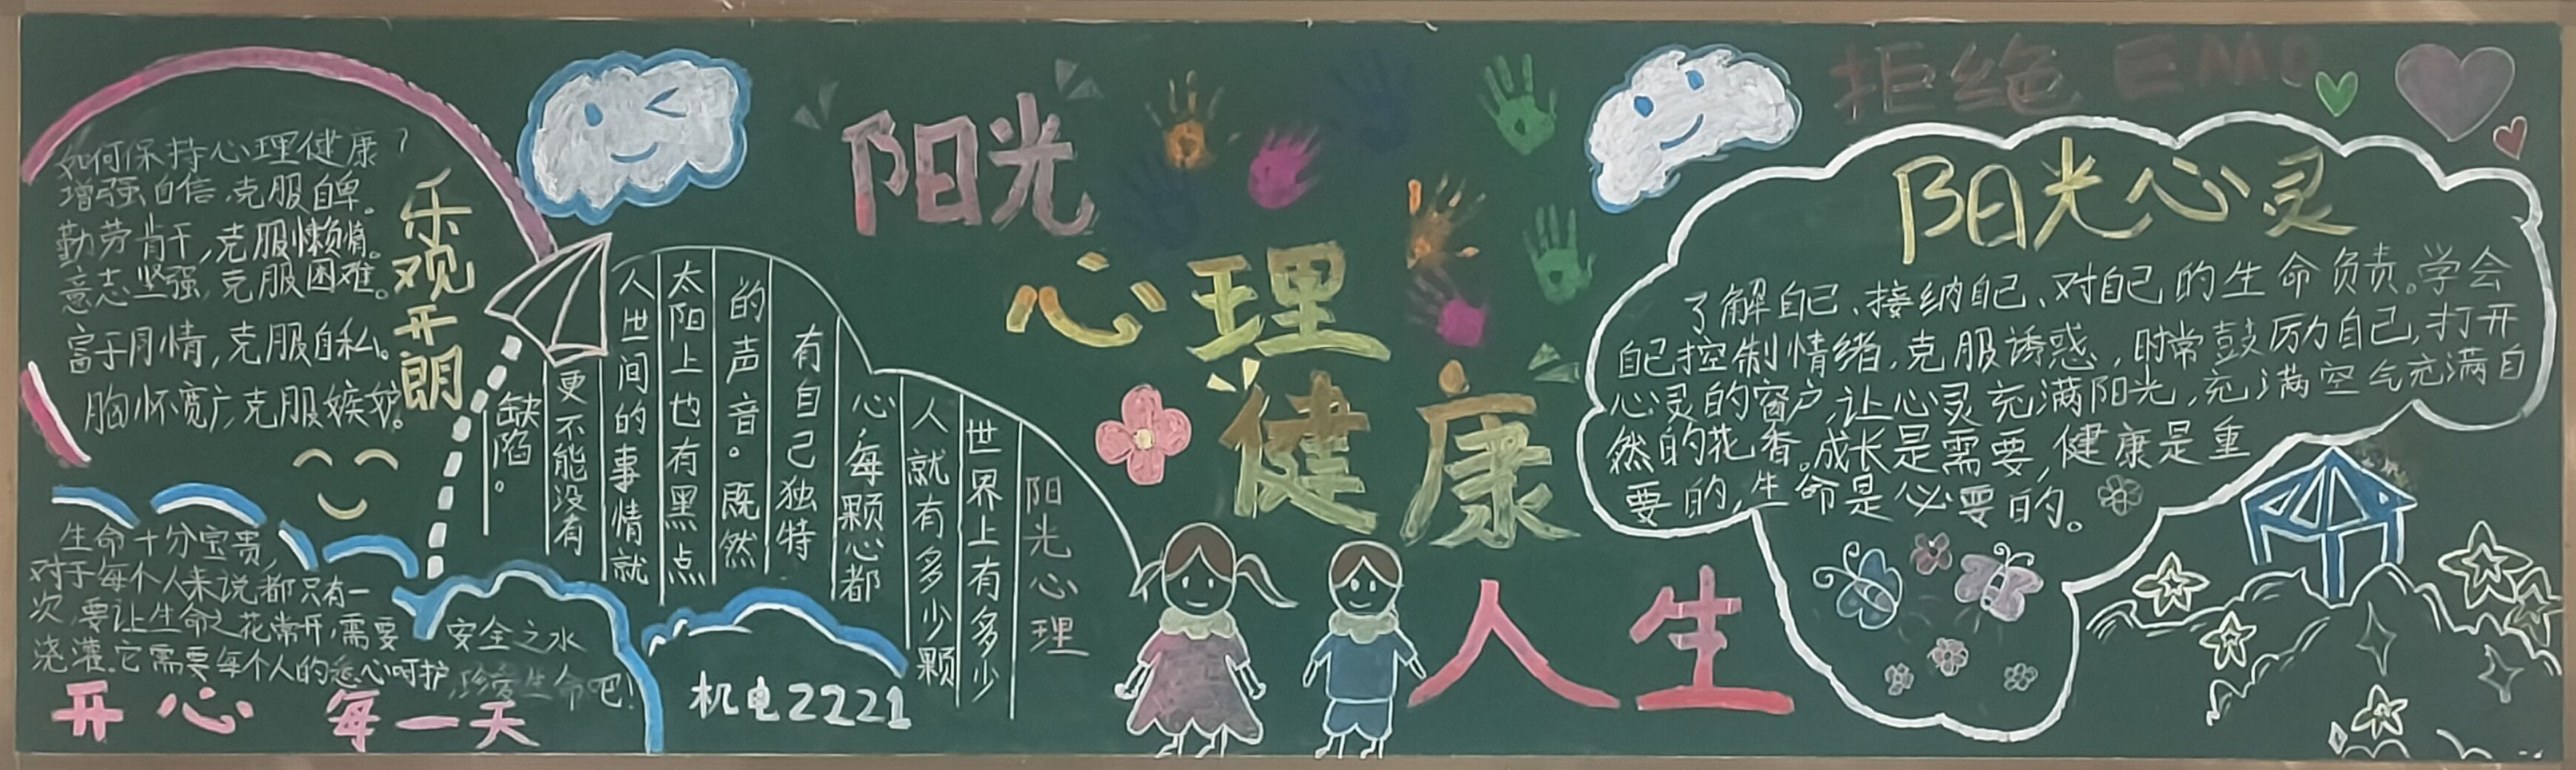 如何保持心理健康?
增强自信,克服自卑。
勤劳肯干,克服懒惰。
意志坚强,克服困难。
富于同情,克服自私。
胸怀宽广,克服嫉妒。
乐观开朗
生命十分宝贵,
对于每个人来说都只有一
次,要让生命之花常开,需要
浇灌。它需要每个人的
心呵护,珍爱生命吧!
安全之水
开心每一天
阳光心理
世界上有多少
人就有多少颗
心,每颗心都
有自己独特
的声音。既然
太阳上也有黑点
人世间的事情就
更不能没有
缺陷。
机电2221
阳光
心理
健康
人生
拒绝EMO
阳光心灵
了解自己、接纳自己、对自己的生命负责。学会
自己控制情绪,克服诱惑,时常鼓厉自己,打开
心灵的窗户,让心灵充满阳光,充满空气充满自
然的花香。成长是需要,健康是重
要的,生命是必要的。